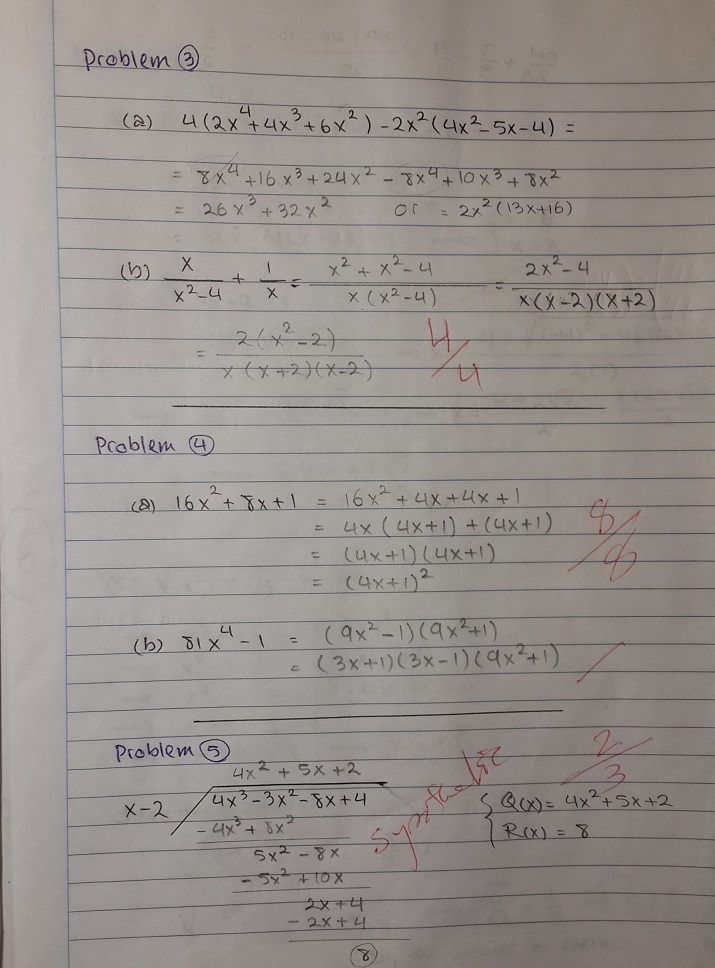 Problem ③
(a) 4(2x⁴+4x³+6x²) -2x²(4x²-5x-4) =
= 8x⁴+16x³+24x² - 8x⁴+10x³+8x²
= 26x³+32x² or = 2x²(13x+16)
(b) x/(x²-4) + 1/x = (x²+x²-4)/(x(x²-4)) = (2x²-4)/(x(x-2)(x+2))
= 2(x²-2)/(x(x+2)(x-2)) 4/4
Problem ④
(a) 16x²+8x+1 = 16x²+4x+4x+1
= 4x(4x+1)+(4x+1) 8/8
= (4x+1)(4x+1)
= (4x+1)²
(b) 81x⁴-1 = (9x²-1)(9x²+1)
= (3x+1)(3x-1)(9x²+1)
Problem ⑤ 2/3
4x² + 5x + 2
x-2 4x³-3x²-8x+4 Q(x)= 4x²+5x+2
-4x³+8x² R(x) = 8
5x²-8x
-5x²+10x
2x+4
-2x+4
⑧